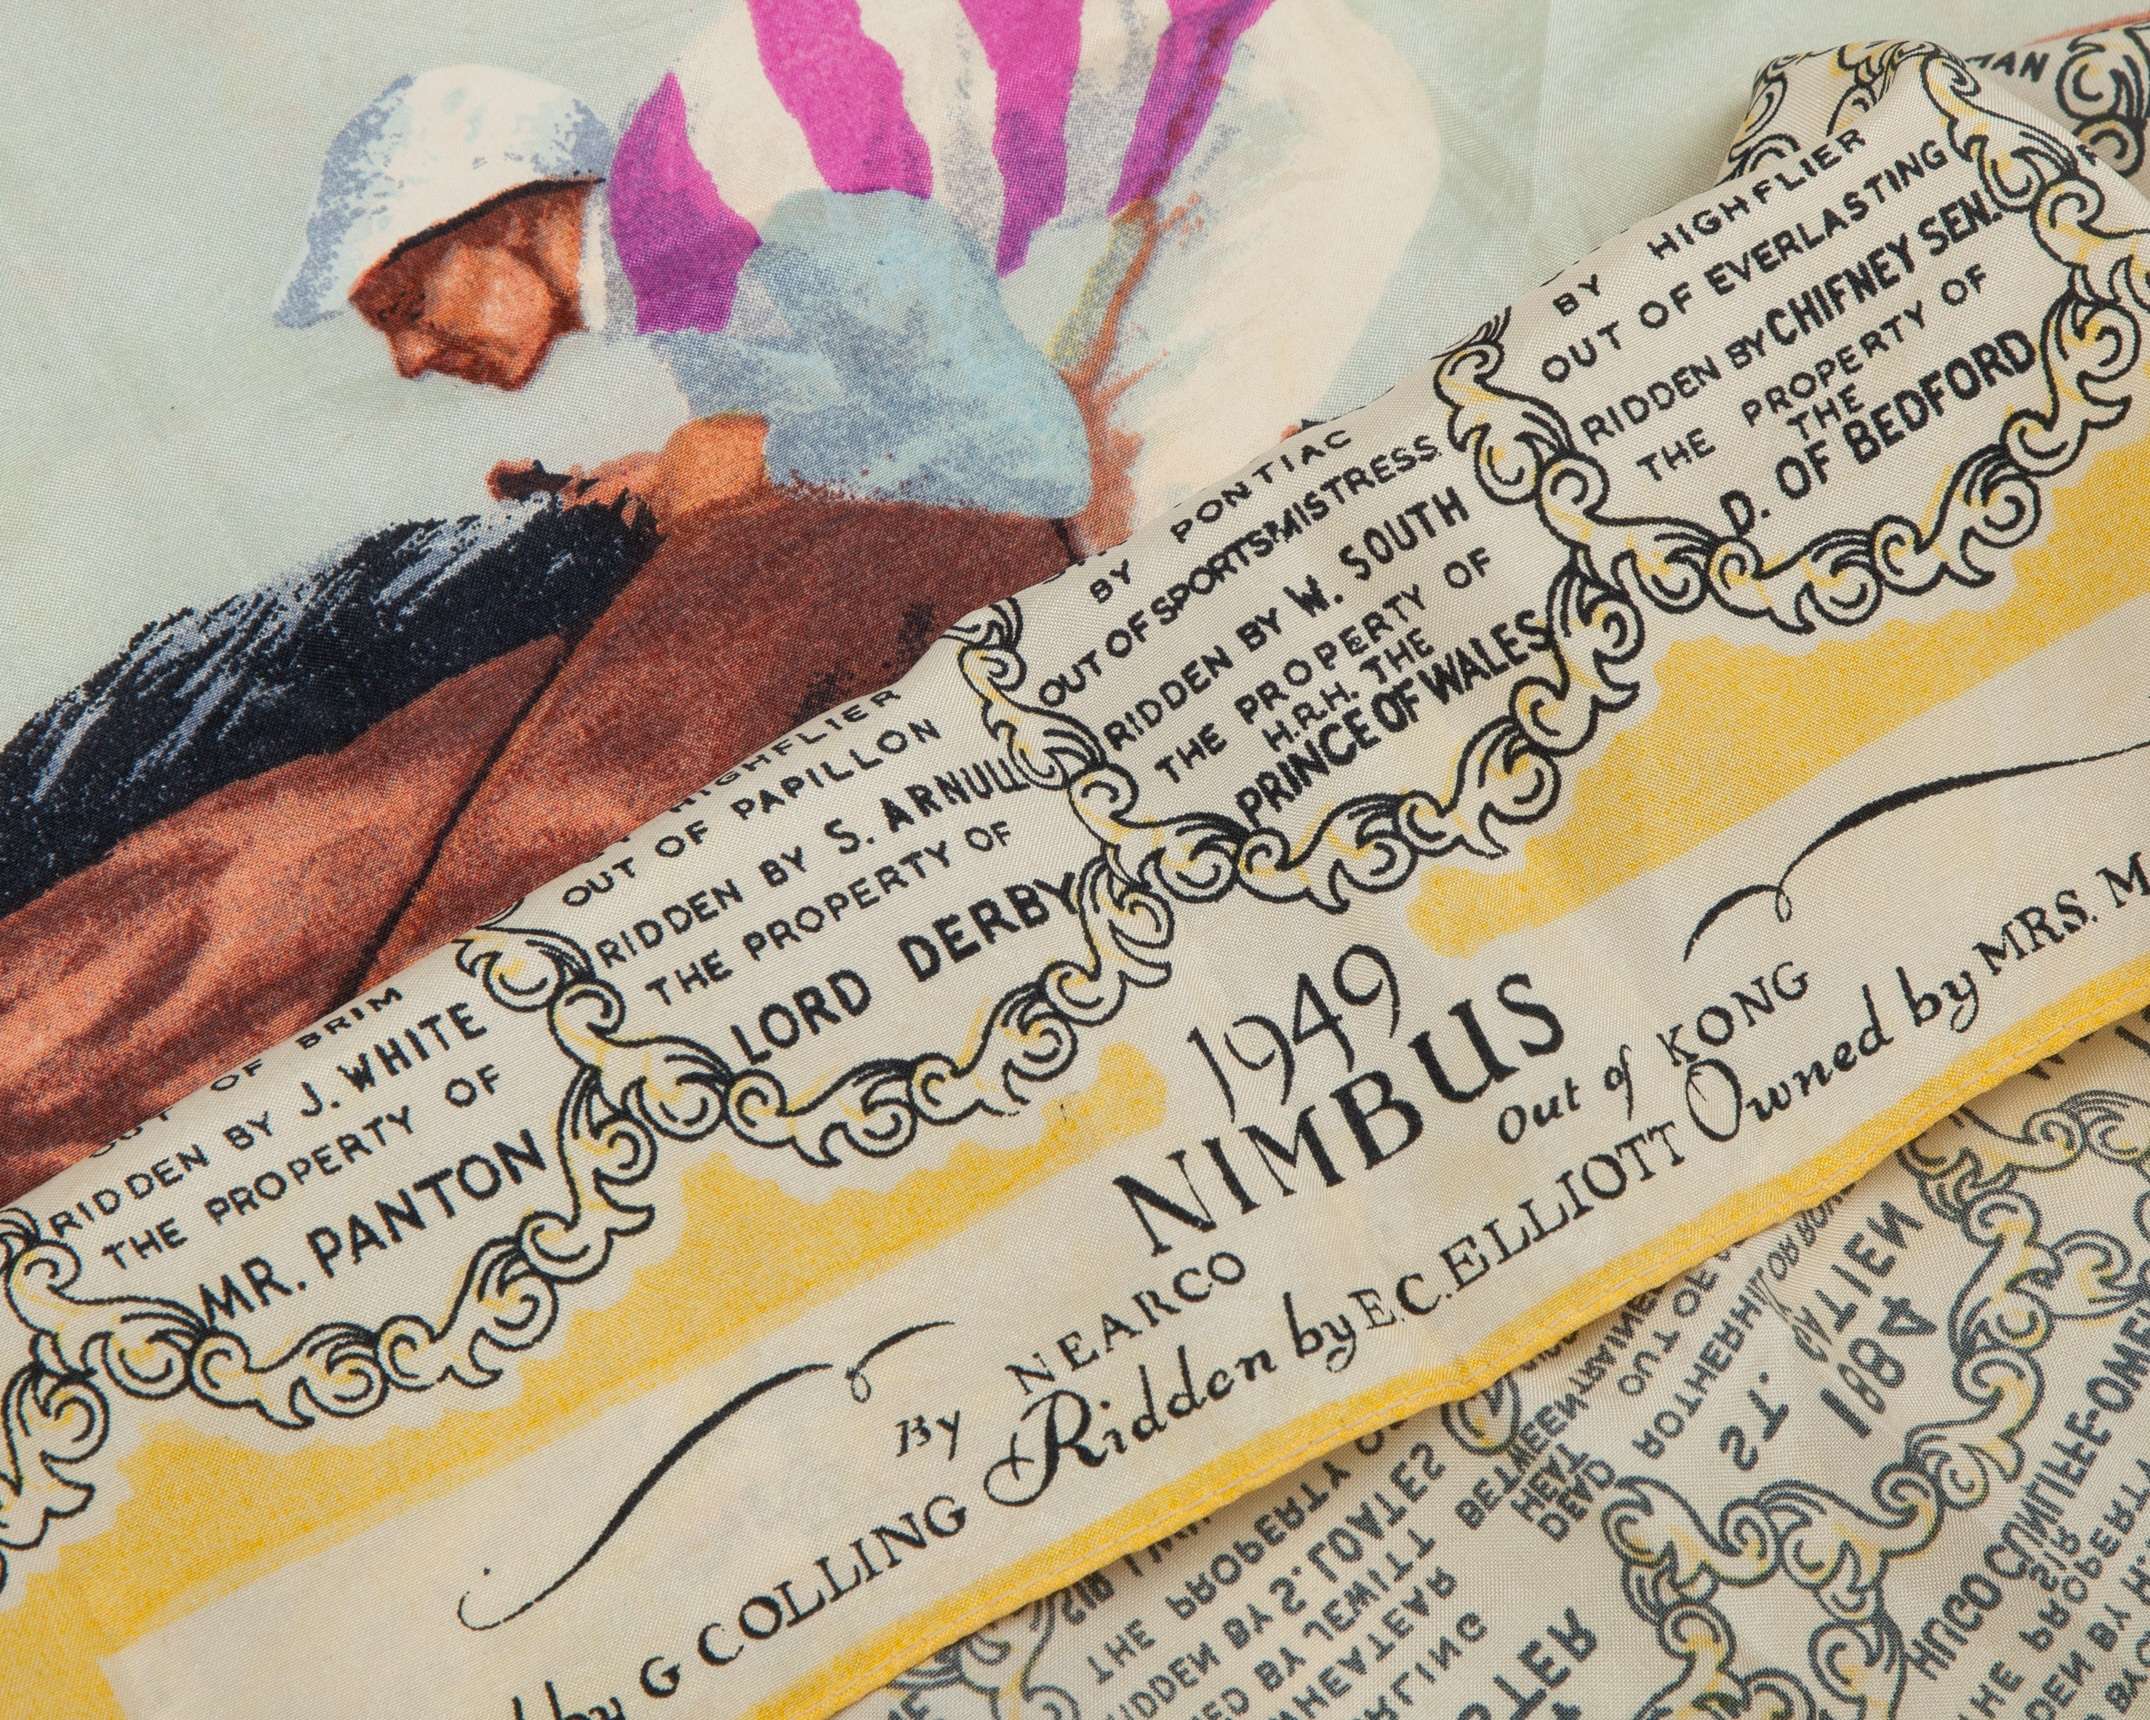 BY HIGHFLIER
OUT OF EVERLASTING
RIDDEN BY CHIFNEY SEN.
THE PROPERTY OF
THE
D. OF BEDFORD
BY PONTIAC
OUT OF SPORTSMISTRESS
RIDDEN BY W. SOUTH
THE PROPERTY OF
H.R.H. THE
PRINCE OF WALES
HIGHFLIER
OUT OF PAPILLON
RIDDEN BY S. ARNULL
THE PROPERTY OF
LORD DERBY
OUT OF BRIM
RIDDEN BY J. WHITE
THE PROPERTY OF
MR. PANTON
1949
NIMBUS
By NEARCO Out of KONG
by G COLLING Ridden by E.C. ELLIOTT Owned by MRS. M
1884
ST.
GATIEN
HARVESTER
DEAD
HEAT
BETWEEN
THE PROPERTY
RIDDEN BY S. LOATES
BY JEWITT
WHEATEAR
HUGO CUNLIFFE-OWEN
SIR
THE PROPERTY